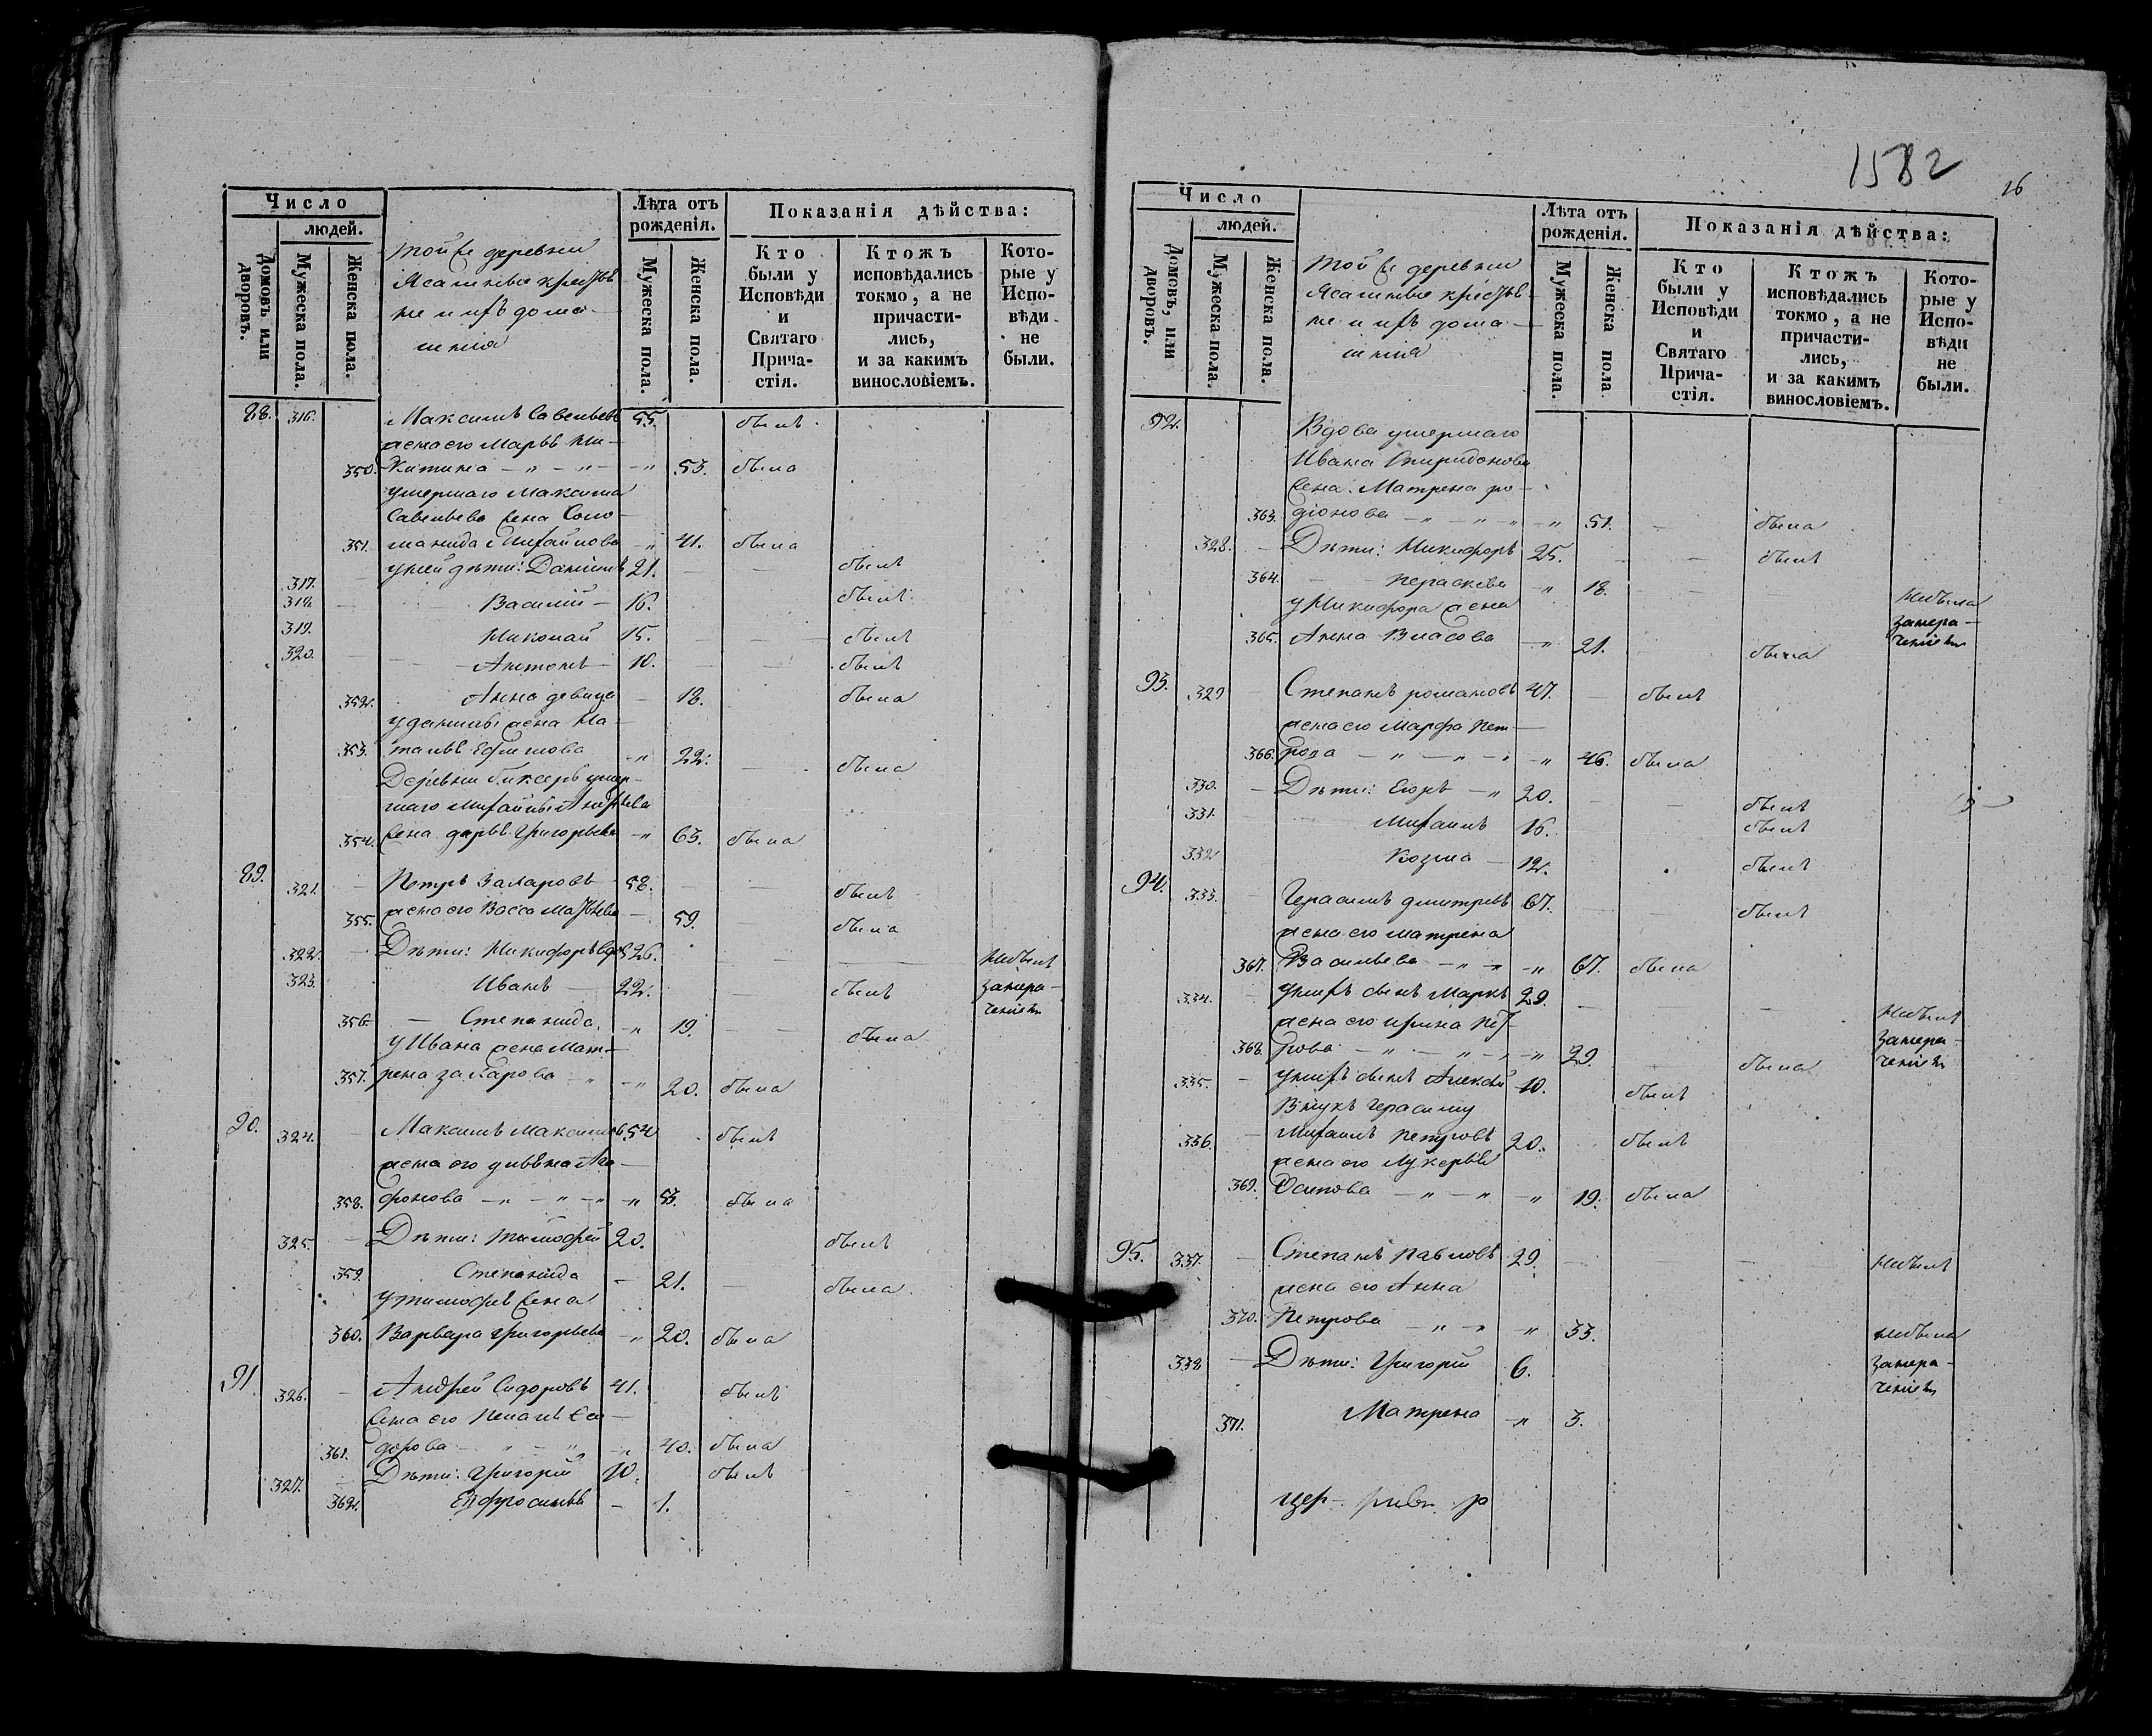 Число
людей.
Домовъ или дворовъ.
Мужеска пола.
Женска пола.
той же деревни
Ясашные крестья
не и ихъ дома-
шния
Лѣта отъ рожденія.
Мужеска пола.
Женска пола.
Показанія дѣйства:
Кто были у Исповѣди и Святаго Прича- стія.
Ктожъ исповѣдались токмо, а не причасти- лись, и за какимъ винословіемъ.
Кото- рые у Испо- вѣди не были.
88. 316. Максимъ Савельевъ 55. былъ
жена его Марья Ни-
350. китина 53. была
умершаго Максима
Савельева жена Соло-
351. манида Михайлова 41. была
у ней дѣти: Данило 21. былъ
317.
318. Василий 16. былъ
319. Николай 15. былъ
320. Антонъ 10. былъ
352. Анна девица 18. была
у Данилы жена На-
353. талья Ефимова 22. была
Деревни умер-
шаго Михайлы
354. жена дарья Григорьева 63. была
89. 321. Петръ Захаровъ 58. былъ
355. жена его Васса Матвѣева 59. была
322. Дѣти: Никифоръ 26. небылъ
323. Иванъ 22. былъ занера-
чениемъ
356. Степанида 19. была
у Ивана жена Мат-
357. рена захарова 20. была
90. 324. Максимъ Максимовъ 54 былъ
жена его Ага-
358. фонова 53. была
325. Дѣти: Тимофей 20. былъ
359. Степанида 21. была
у тимофея жена
360. Варвара Григорьева 20. была
91. 326. Андрей Сидоровъ 41. былъ
жена его
361. дорова 40. была
327. Дѣти: Григорий 10. былъ
362. Ефросинья 1.
1582
26
Число
людей.
Домовъ, или дворовъ.
Мужеска пола.
Женска пола.
той же деревни
Ясашные крестья
не и ихъ дома-
шния
Лѣта отъ рожденія.
Мужеска пола.
Женска пола
Показанія дѣйства:
Кто были у Исповѣди и Святаго Прича- стія.
Ктожъ исповѣдались токмо, а не причасти- лись, и за какимъ винословіемъ.
Кото- рые у Испо- вѣди не были.
92. Вдова умершаго
Ивана Спиридонова
жена Матрена ро-
363. дионова 51. была
328. Дѣти: Никифоръ 25. былъ
364. Пераскева 18. небыла
у Никифора жена занера-
365. Анна Власова 21. была чениемъ
93. 329 Степанъ романовъ 47. былъ
жена его Марфа Пет-
366. рова 46. была
330. Дѣти: Егоръ 20. былъ
331. Михаилъ 16. былъ
332 Козма 12. былъ
94. 333. Герасимъ дмитревъ 67. былъ
жена его матрена
367. Васильева 67. была
334. у нихъ сынъ Маркъ 29. небылъ
жена его ирина Пет- занера-
368. рова 29. была чениемъ
335. у нихъ сынъ Алексей 10. былъ
Внукъ Герасиму
336. Михаилъ петровъ 20. былъ
жена его Лукерья
369. Осипова 19. была
95. 337. Степанъ павловъ 29. небылъ
жена его Анна
370. Петрова 33. небыла
338 Дѣти: Григорий 6. занера-
чениемъ
371. Матрена 3.